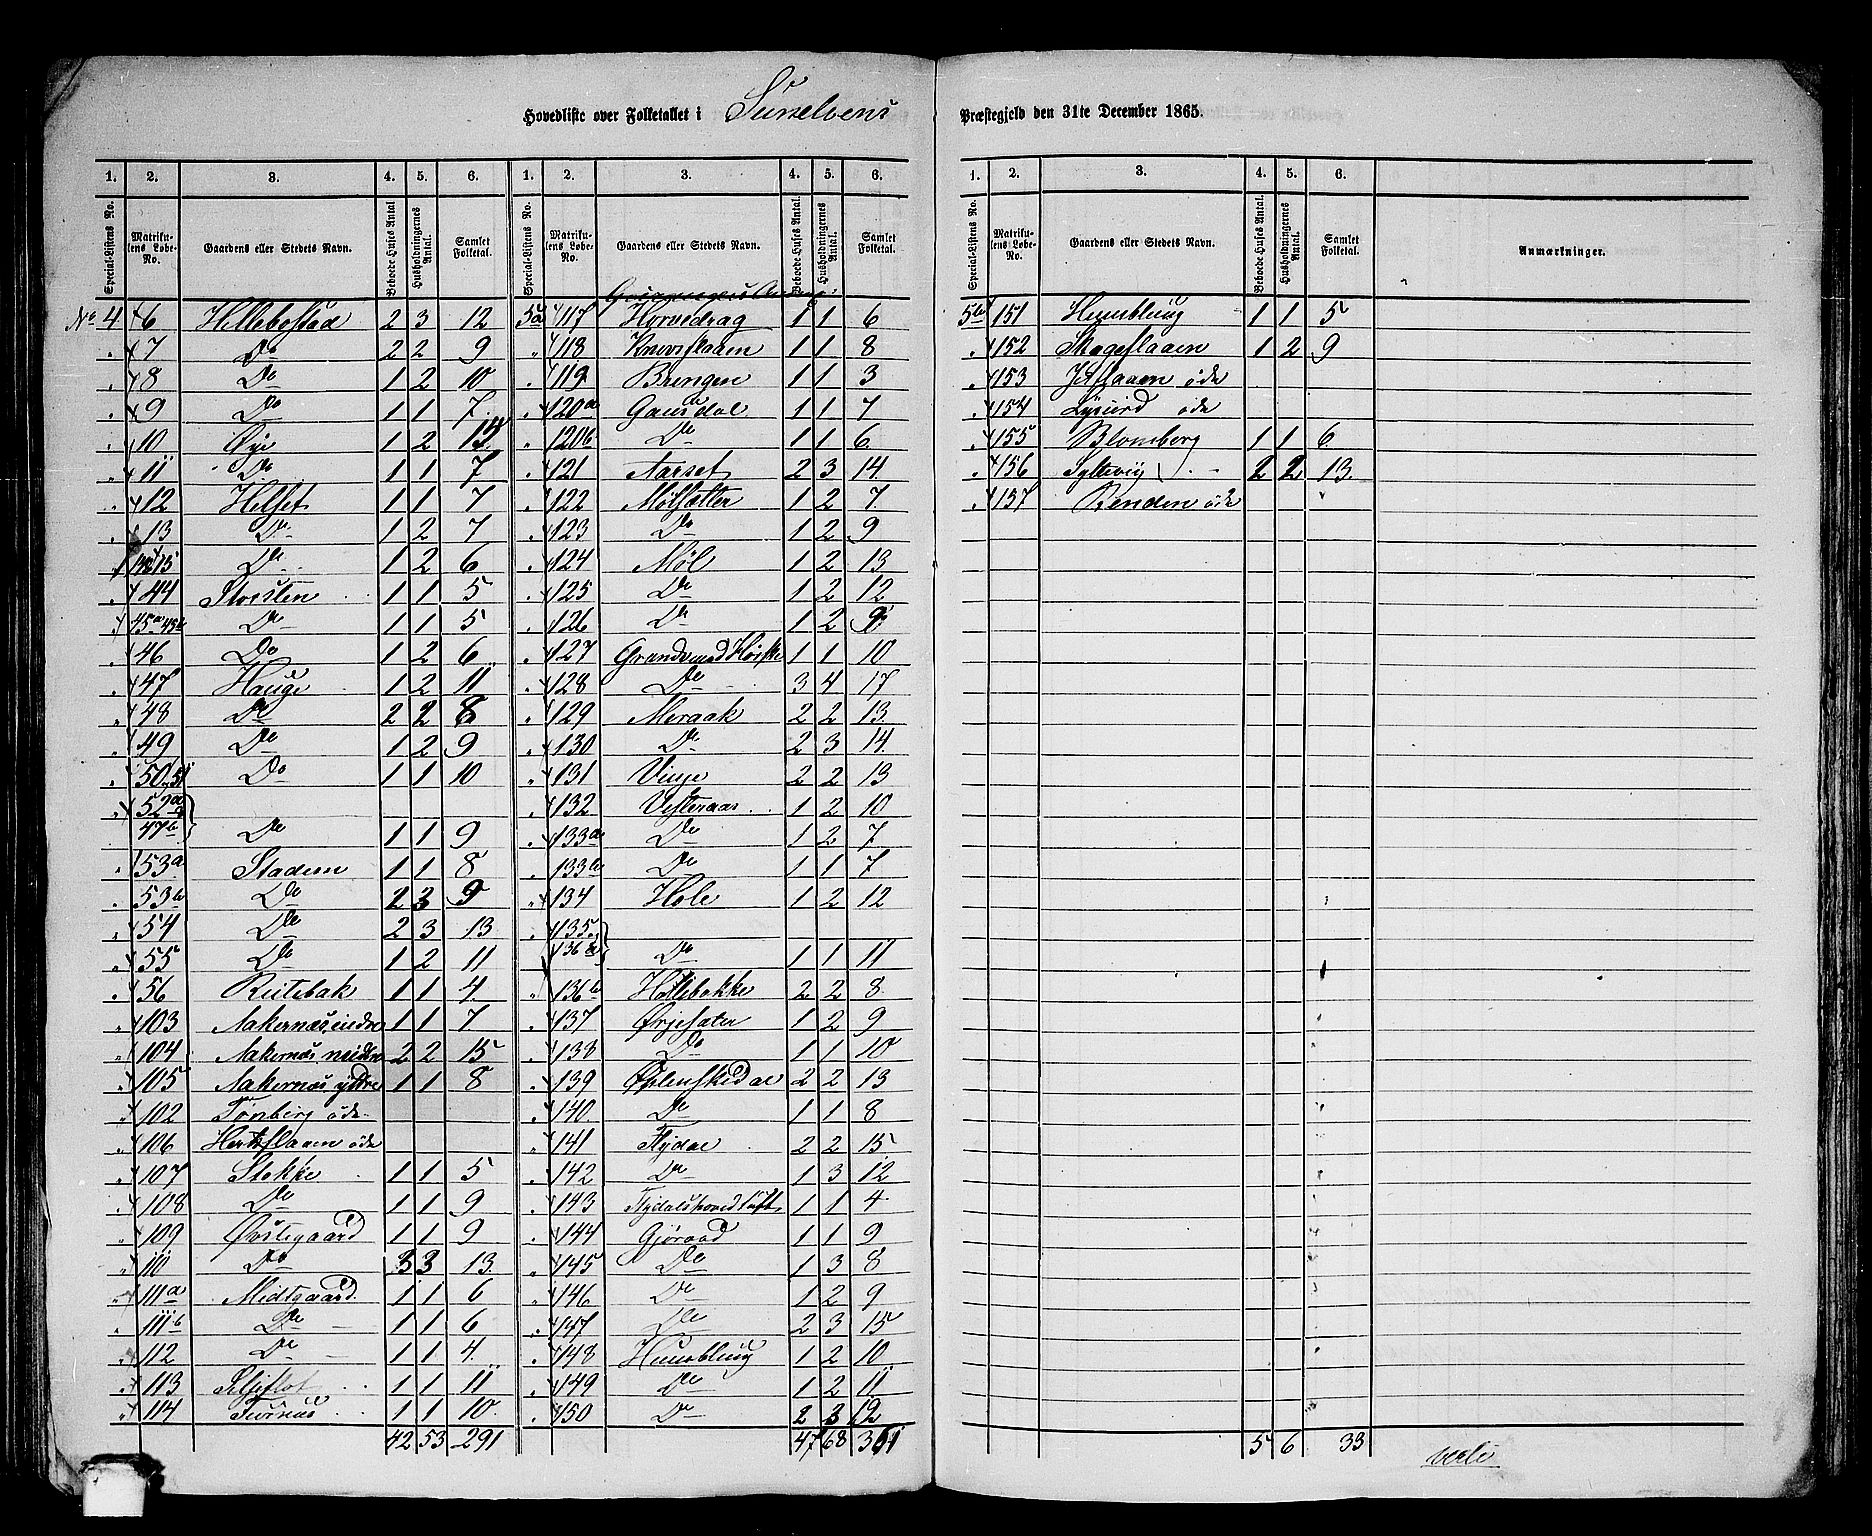 Hovedliste over Folketallet i Sunelvens Præstegjeld den 31te December 1865.
1. 2. 3. 4. 5. 6. 1. 2. 3. 4. 5. 6.
Special-Listens No. Matrikulens Løbe-No. Gaardens eller Stedets Navn. Beboede Huses Antal Husholdningernes Antal. Samlet Folketal. Special-Listens No. Matrikulens Løbe-No. Gaardens eller Stedets Navn. Beboede Huses Antal. Husholdningernes Antal. Samlet Folketal.
No 4 6 Hellebostad 2 3 12
" 7 Do 2 2 9
" 8 Do 1 2 10
" 9 Do 1 1 7
" 10 Øye 1 2
" 11 Do 1 1 7
" 12 Helset 1 1 7
" 13 Do 1 2 7
15 Do 1 2 6
" 44 Storsten 1 1 5
45a 45b Do 1 1 5
" 46 Do 1 2 6
" 47 Hauge 1 2 11
" 48 Do 2 2 8
" 49 Do 1 2 9
" 50, 51 Do 1 1 10
" 52a
47b Do 1 1 9
" 53a Stadem 1 1 8
" 53b Do 2 3 9
" 54 Do 2 3 13
" 55 Do 1 2 11
" 56 Reitebak 1 1 4
" 103 Aakernæs, indre 1 1 7
" 104 Aakernæs midtre 2 2 15
" 105 Aakernæs ydre 1 1 8
" 102 Tonberg öde
" 106 Herkflaaen öde
" 107 Stokke 1 1 5
" 108 Do 1 1 9
" 109 Østegaard 1 1 9
" 110 Do 3 3 13
" 111a Midtgaard 1 1 6
" 111b Do 1 1 6
" 112 Do 1 1 4
" 113 1 1 11
" 114 Furnæs 1 1 10
42 53 291
5a 117 Horvedrag 1 1 6
" 118 Knivsflaaen 1 1 8
" 119 Bringen 1 1 3
" 120a Gausdal 1 1 7
" 120b Do 1 1 6
" 121 Aarset 2 3 14
" 122 Mølsætter 1 2 7
" 123 Do 1 2 9
" 124 Møl 1 2 13
" 125 Do 1 2 12
" 126 Do 1 2 9
" 127 Grande med 1 1 10
" 128 Do 3 4 17
" 129 Meraak 2 2 13
" 130 Do 2 3 14
" 131 Vinje 2 2 13
" 132 Vesteraas 1 2 10
" 133a Do 1 2 7
" 133b Do 1 1 7
" 134 Hole 1 2 12
" 135
136a Do 1 1 11
" 136b Hollebakke 2 2 8
" 137 Ørjesæter 1 2 9
" 138 Do 1 1 10
" 139 Øplenskedal 2 2 13
" 140 Do 1 1 8
" 141 Flydal 2 2 15
" 142 Do 1 3 12
" 143 Flydalshoved 1 1 4
" 144 Gjøraad 1 1 9
" 145 Do 1 3 8
" 146 Do 1 2 9
" 147 Do 2 3 15
" 148 Humblung 1 2 10
" 149 Do 1 2 11
" 150 Do 2 3 12
47 68 361
1. 2. 3. 4. 5. 6.
Special-Listens No. Matrikulens Løbe-No. Gaardens eller Stedets Navn. Beboede Huses Antal. Husholdningernes Antal. Samlet Folketal. Anmærkninger.
5b 151 Humblung 1 1 5
" 152 Skageflaaen 1 2 9
" 153 öde
" 154 öde
" 155 Blomberg 1 1 6
" 156 Syltevig 2 2 13
" 157 Renden öde
5 6 33